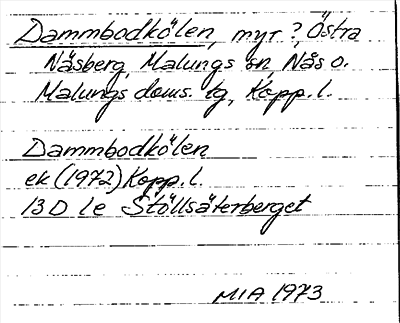 Dammbodkölen, myr?, Östra
Nåsberg, Malungs sn, Nås o.
Malungs doms. tg, Kopp. l.
Dammbodkölen
ek (1972) Kopp. l.
13D 1e Stöllsäterberget
MIA 1973